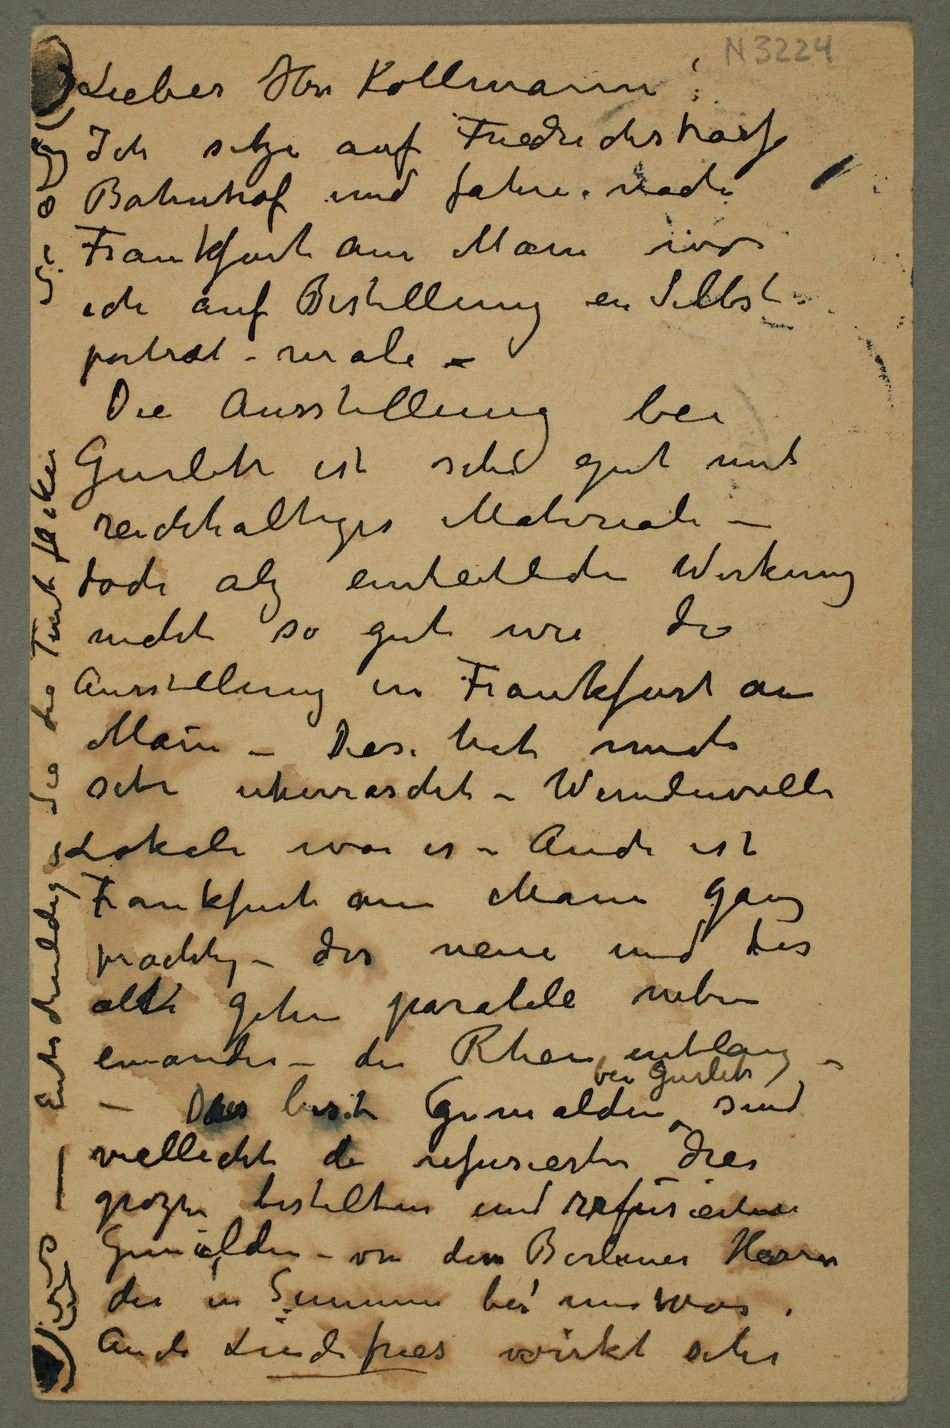 N 3224
Lieber Herr Kollmann!
Ich sitze auf Friedrichstrasse
Bahnhof und fahre nach
Frankfurt am Main wo
ich auf Bestellung ein Selbst-
portræt - male -
Die Ausstellung bei
Gurlitt ist sehr gut mit
reichhaltiges Materiale -
doch alz einheitlichen Wirkung
nicht so gut wie die
Ausstellung in Frankfurt am
Main - Dies hat mich
sehr uberrascht - Wundervolle
Lokale war es - Auch ist
Frankfurt am Main ganz
prachtig - das neue und das
alte gehen paralele neben
einander - den Rhein entlang -
- Das beste Gemälden bei Gurlitt sind
vielleicht die refusierten drei
grozsen bestellten und refusierten
Gemälden - von dem Berliner Herrn
der in Summer bei mir war.
Auch Lindefries wirkt sehr
- Entschuldigen Sie die Tintflecken